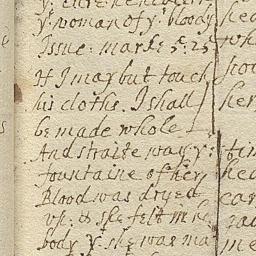 yᵉ woman of yᵉ bloody
Issue: marke 5: 25
If I may but touch
his clothe. I shall
be made whole
And straite way: yᵉ
fountaine of her
Blood was dryed
vp: & she felt in her
body yᵗ she was ma